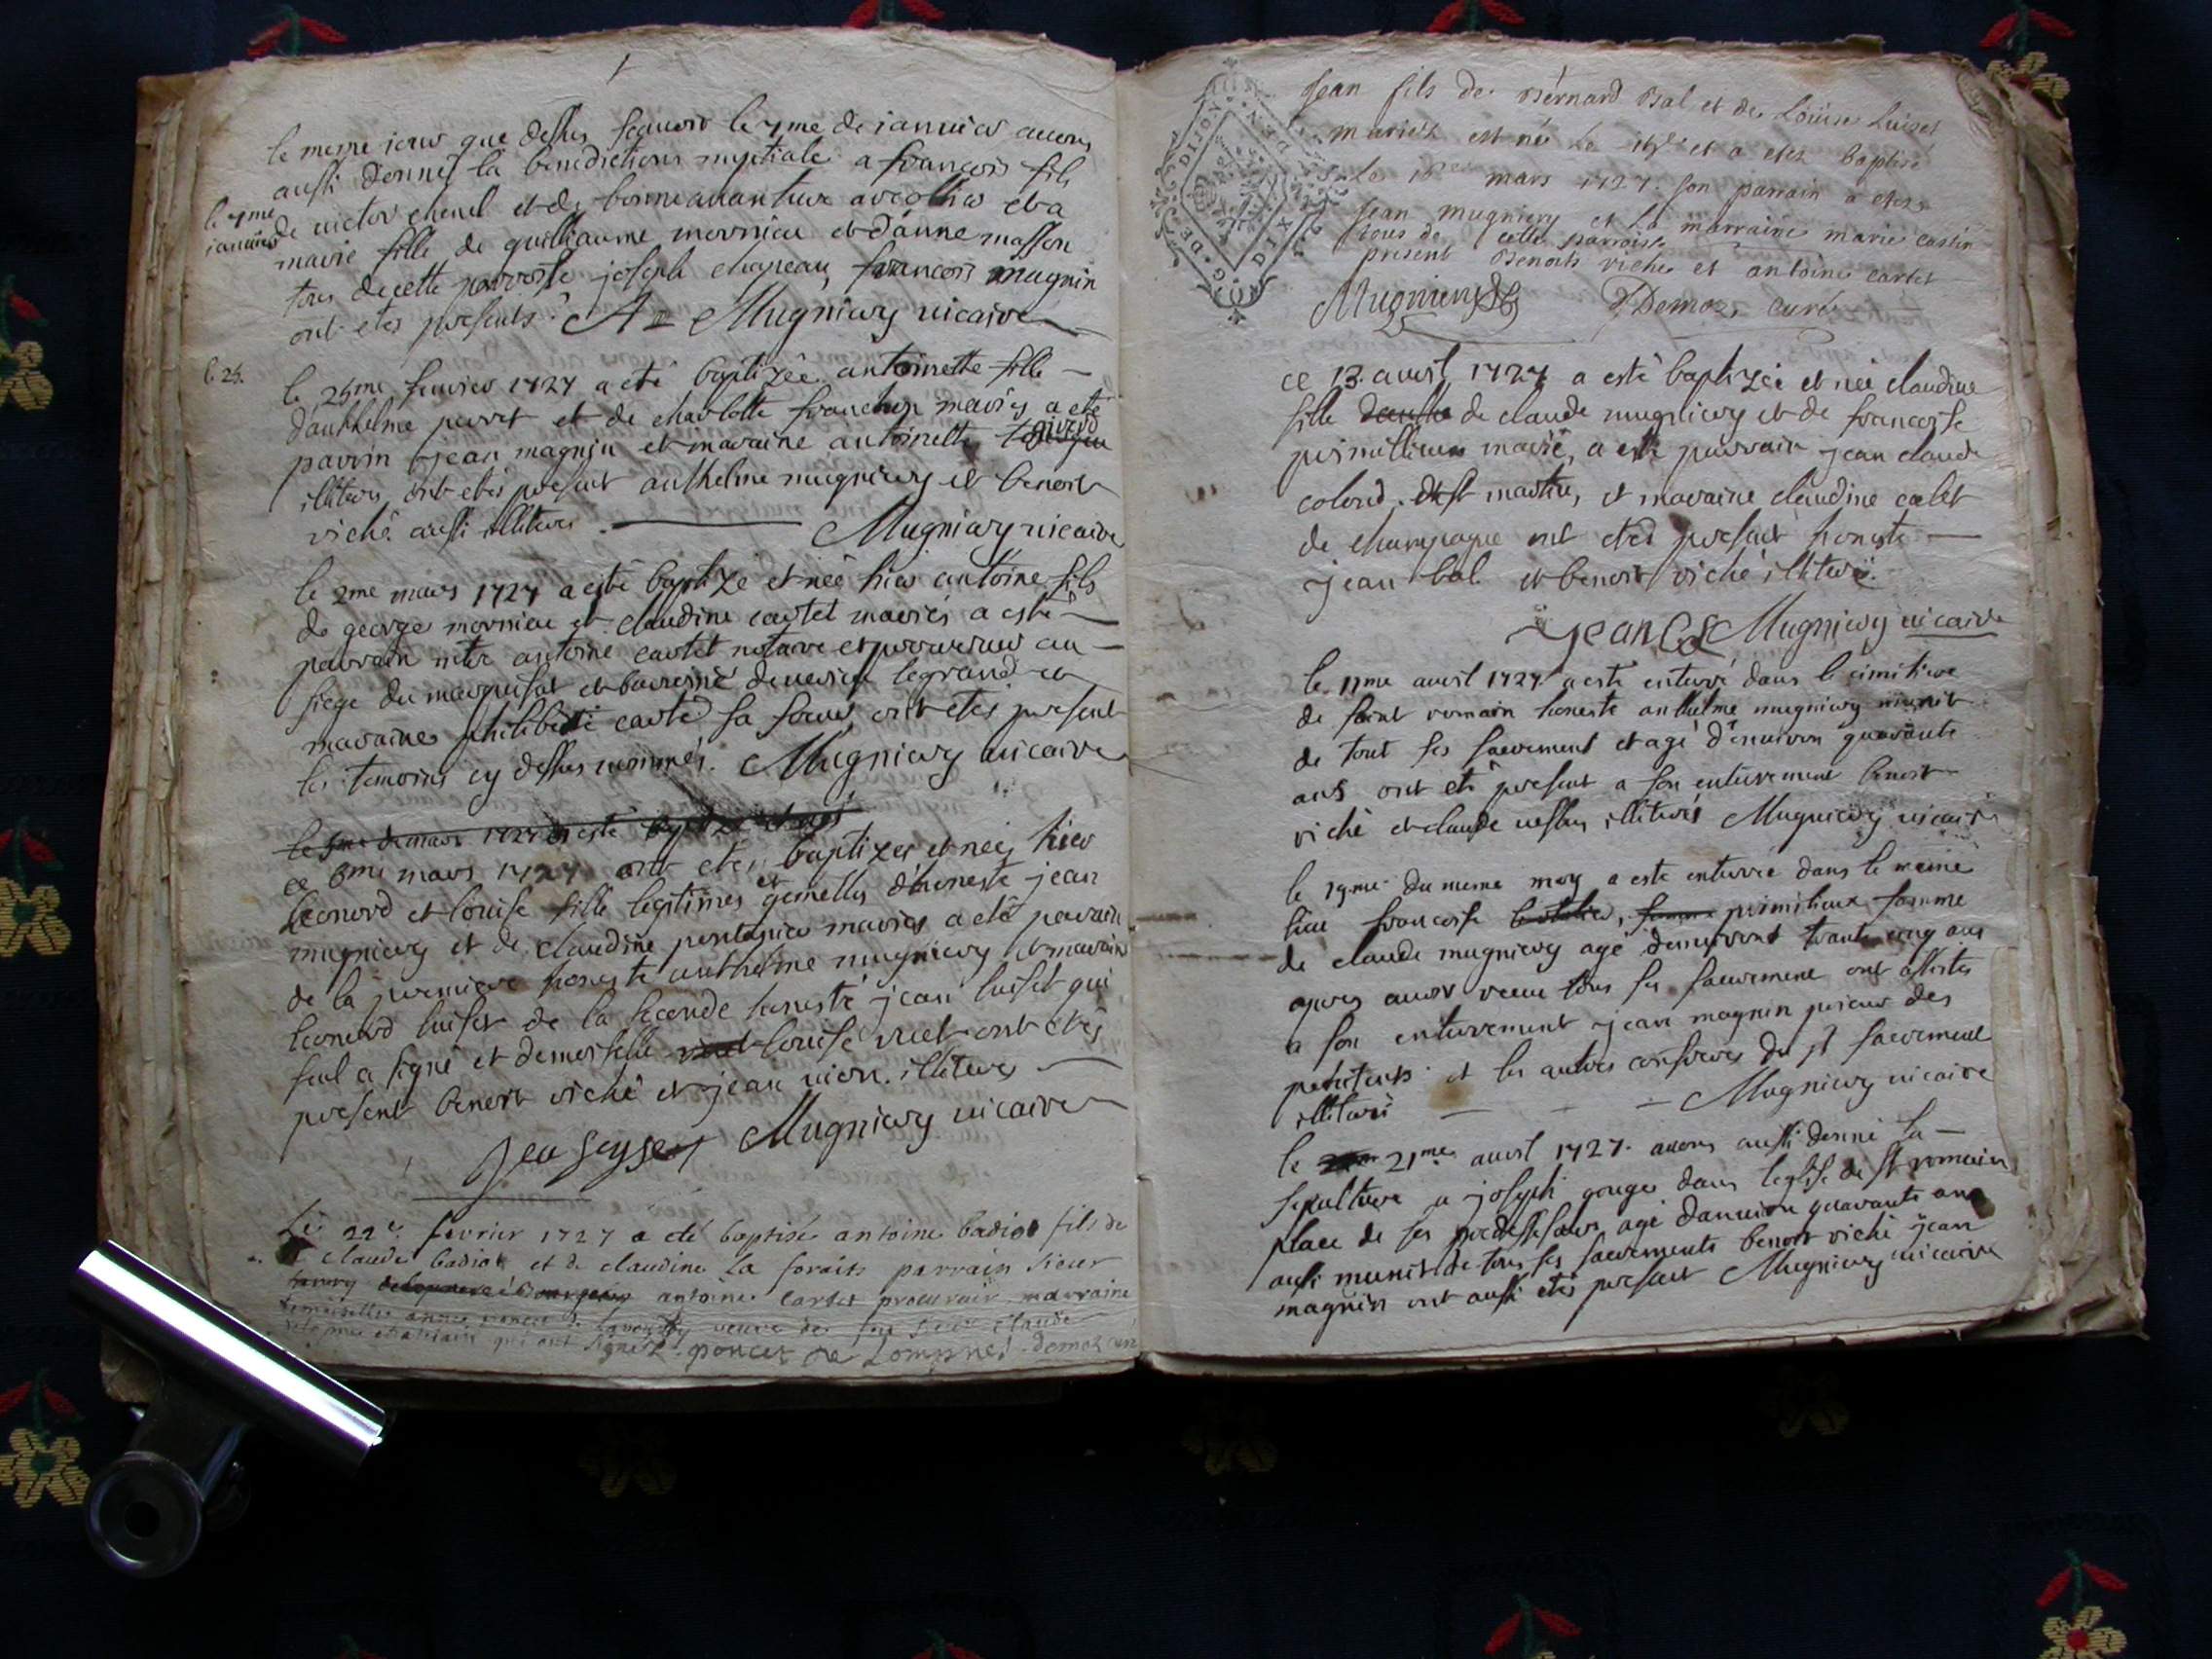 le meme jour que dessus scauoir le 7me de januier auons
aussi donnés la benediction nuptiale a francois fils
le 7me
januier
de victor chenel et de bonneauanture et a
marie fille de guilliaume mornieu et d'anne masson
tous de cette parroisse joseph chapeau, francois magnin
ont etes presents. Mugniery vicaire
le 25.
le 25me feurier 1727 a eté baptizée antoinette fille
d'anthelme perret et de charlotte mariés a eté
parrin jean magnin et maraine antoinette
illiteres ont etés present anthelme mugniery et benoit
viché aussi illiteres. Mugniery vicaire
le 2me mars 1727 a esté baptize et née hier antoine fils
de george mornieu et claudine cartet mariés a esté
parrain mtre antoine cartet notaire et procureur au
siege du marquisat et baronnie de legrand et
maraine philiberte cartet sa soeur ont etés present
les temoins cy dessus nommés. Mugniery vicaire
le me de mars 1727 a esté baptizé et né
ce 6me mars 1727 ont etés baptizes et neés hier
et
Leonord et louise fille legitimes gemelles d'honeste jean
mugniery et de claudine mariés a eté parrain
de la premiere honeste anthelme mugniery et maraine
leonord luiset de la seconde honesté jean luiset qui
seul a signé et demoiselle louise ont etés
present benoit viché et jean illiteres
Mugniery vicaire
Le 22e. fevrier 1727 a eté baptisé antoine badiot fils de
claude badiot et de claudine La forait parrain Sieur
antoine Cartet procureur marraine
demoiselle veuve de feu Sieur claude
qui ont signés. poncet de Lompnes. demoz curé
G. DE DIJON
DIX
Jean fils de Bernard Bal et de Loüise Luiset
mariés est né Le et a etez baptisé
le mars 1727. son parrain a etez
Jean mugniery et La marraine marie castin
tous de cette parroisse
present Benoits viche et antoine cartet
Mugniery Demoz curé
ce 13 auril 1727 a esté baptizée et née claudine
fille de claude mugniery et de francoise
primillieux marié, a esté parrain jean claude
colond. et maraine claudine calet
de champagne ont etés present honeste
jean bal et benoit viché illiteré.
jean Mugniery vicaire
le 11me auril 1727 a esté enterré dans le cimitiere
de saint romain honeste anthelme mugniery munit
de tout ses sacrement et agé d'enuiron quarante
ans ont eté present a son enterrement benoit
viché et claude illiterés Mugniery vicaire
le 19me du meme moy a esté enterrée dans le meme
lieu francoise primilieux famme
de claude mugniery agé d'enuiront trante cinq ans
apres auoir receu tous ses sacrement ont assistes
a son enterrement jean magnin prieur des
penitents et les autres confreres du st sacrement
illiterés Mugniery vicaire
le 21me auril 1727. auons aussi donné la
sepulture a joseph gouge dans leglise de st romain
place de ses predessesseur agé danuiron quarante ans
aussi munit de tous ses sacrements benoit viché jean
magnin ont aussi etés present Mugniery vicaire